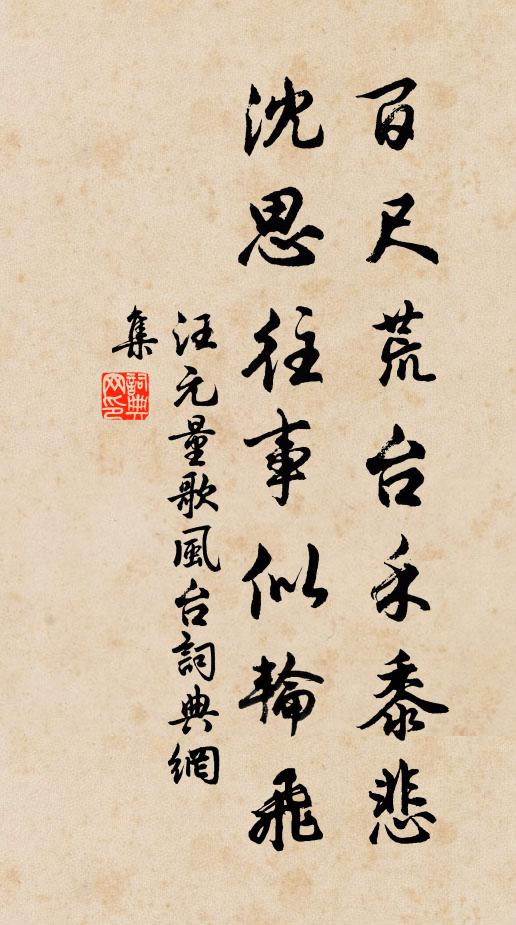 百尺荒台禾黍悲
沈思往事似輪飛
汪元量歌風台詞典網
集
詞典
网印